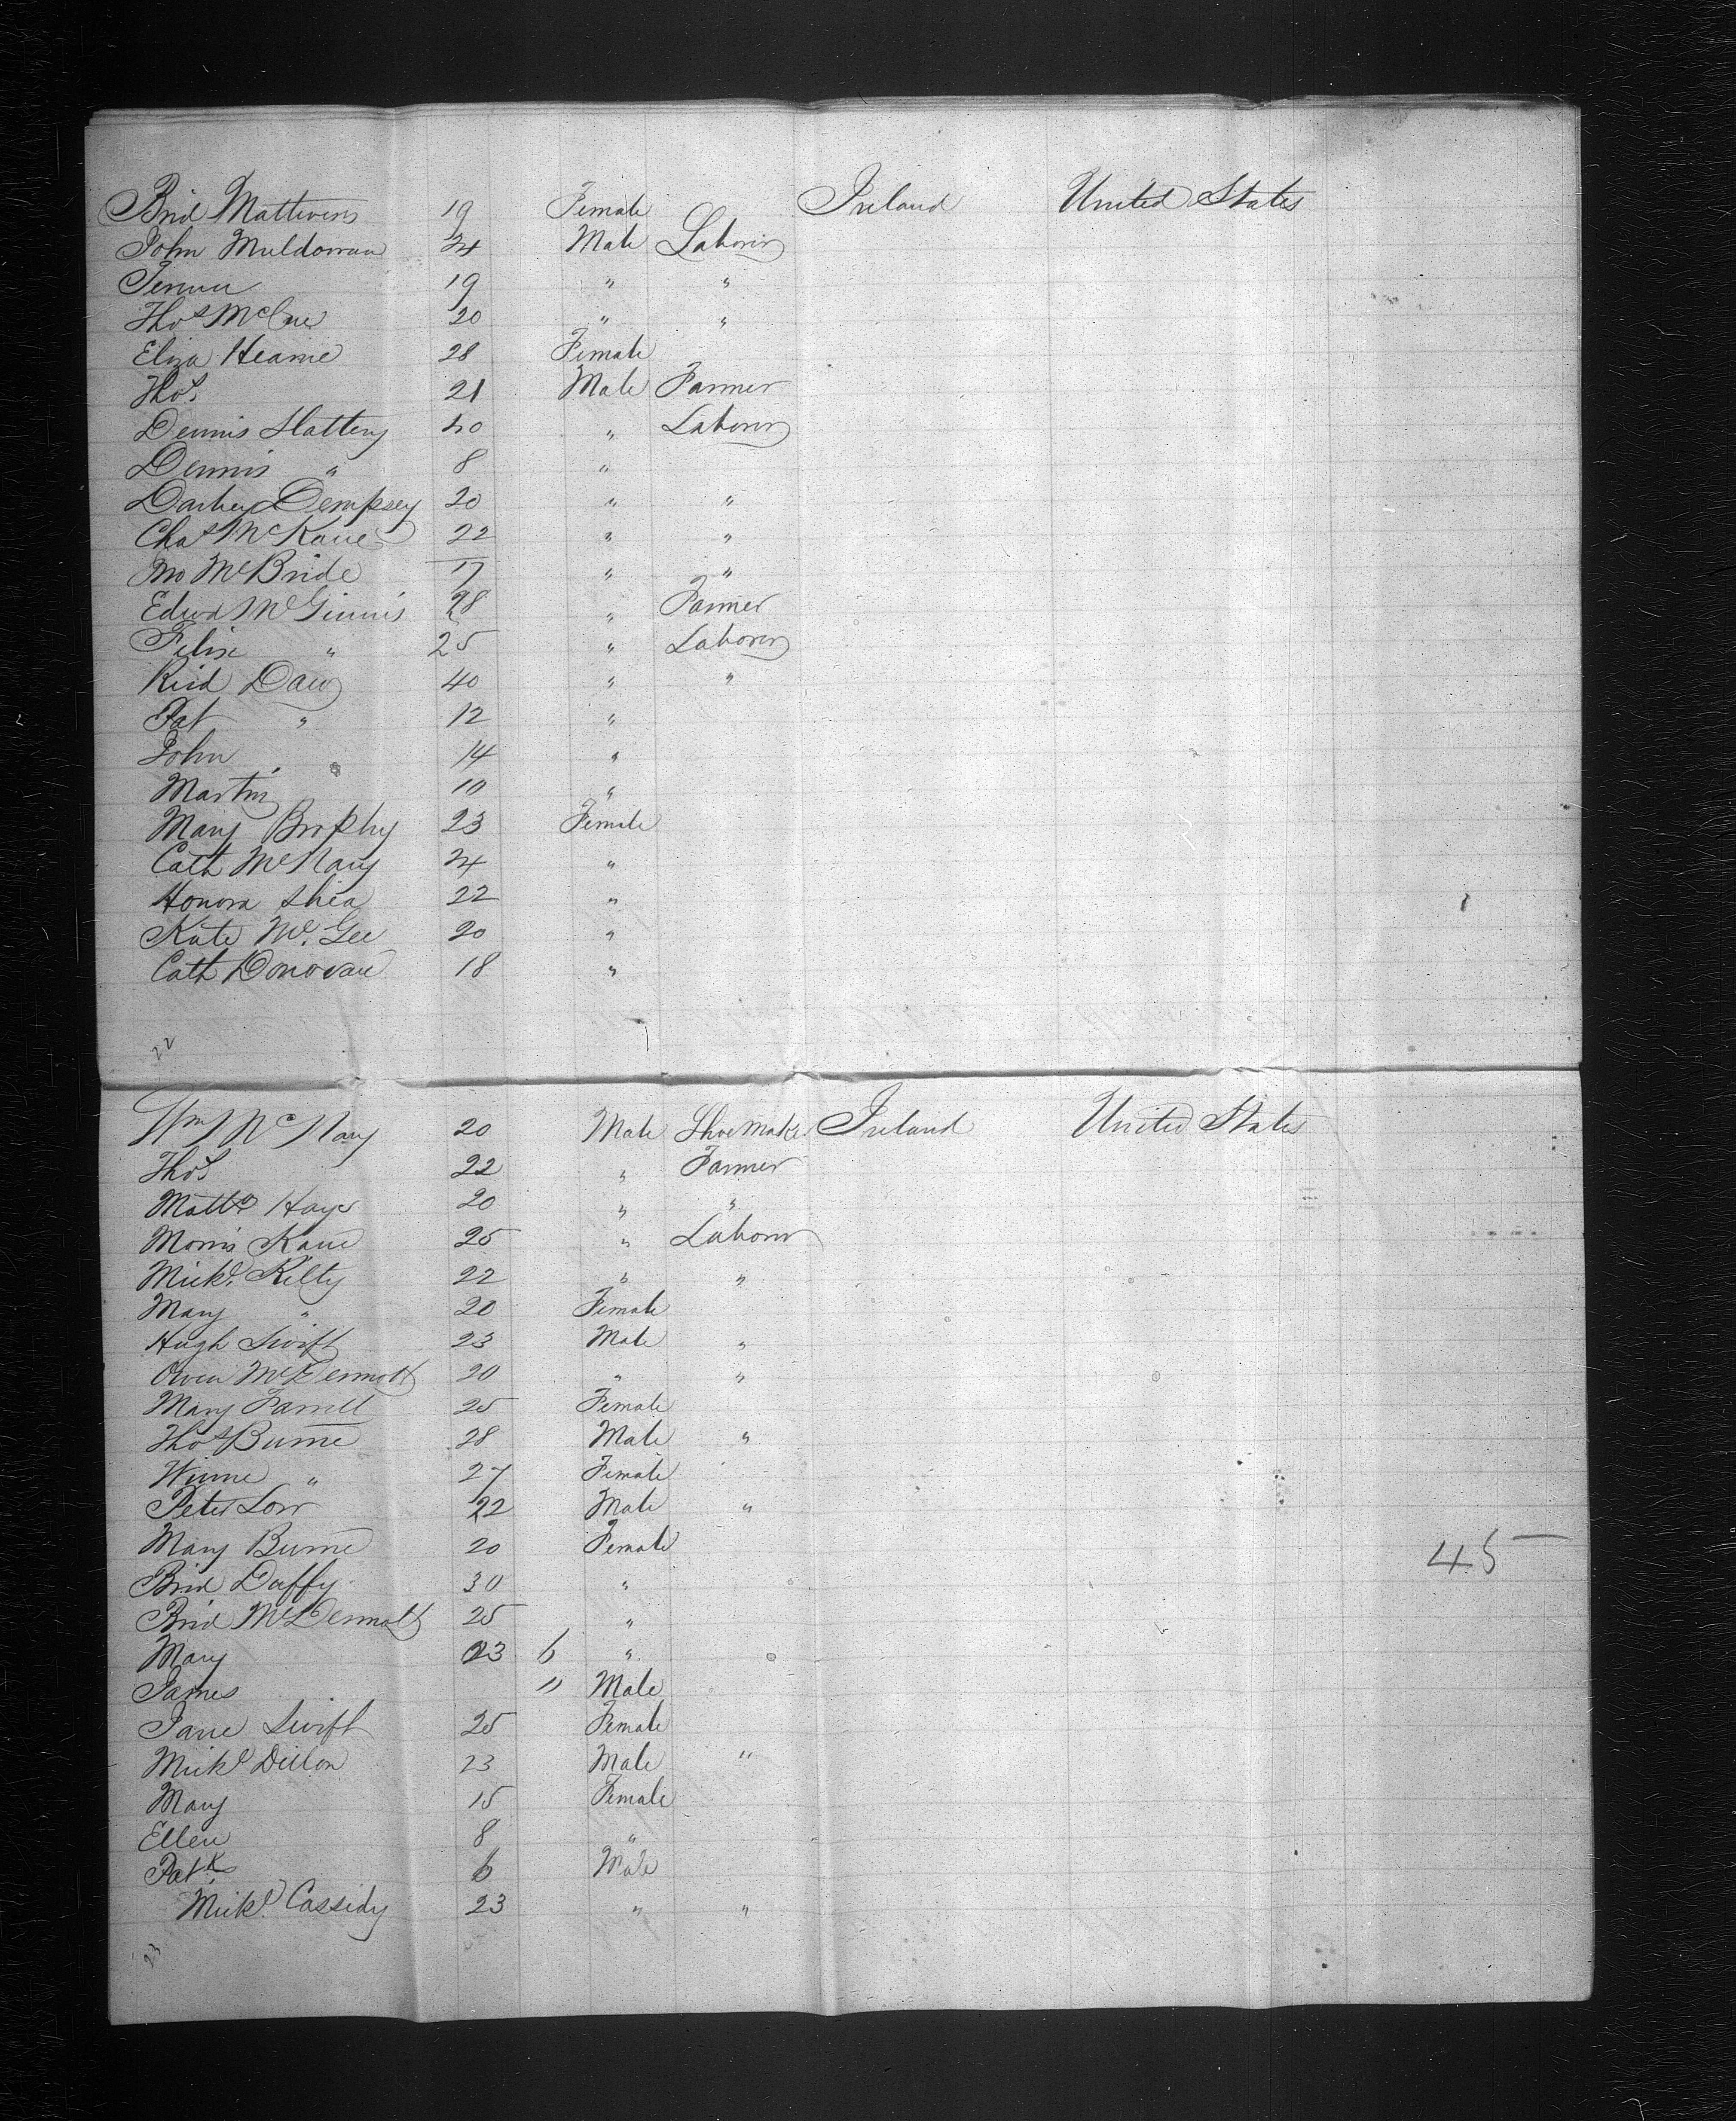 Brid Mattwers 19 Female Ireland United States
John Muldowan 24 Male Laborer
19 " "
Thos McCue 20 " "
Eliza Hearne 28 Female
Thos 21 Male Farmer
Dennis Slattery 40 " Laborer
Dennis " 8 "
Darbey Dempsey 20 " "
Chas McKane 22 " "
Jno McBride 17 " "
Edwd McGinnis 28 " Farmer
Felix " 25 " Laborer
Ricd 40 " "
Pat " 12 "
John " 14 "
Martin 10 "
Mary Brophy 23 Female
Cath McNary 24 "
Honora Shea 22 "
Kate Mc.Gee 20 "
Cath Donovan 18 "
22
Wm McNary 20 Male Shoemaker Ireland United States
Thos 22 " Farmer
Matth Hays 20 " "
Morris Kane 25 " Laborer
Mickl. Kilty 22 " "
Mary " 20 Female
Hugh Swift 23 Male "
Owen McDermott 20 " "
Mary Farrell 25 Female
Thos Burne 28 Male "
Winne " 27 Female
Peter Low 22 Male "
Mary Burne 20 Female
45
Brid Duffy 30 "
Brid McDermott 25 "
Mary 23 6 "
James 11 Male
Jane Swift 25 Female
Mickl Dillon 23 Male "
Mary 15 Female
Ellen 8 "
Patk 6 Male
Mickl. Cassidy 23 " "
23